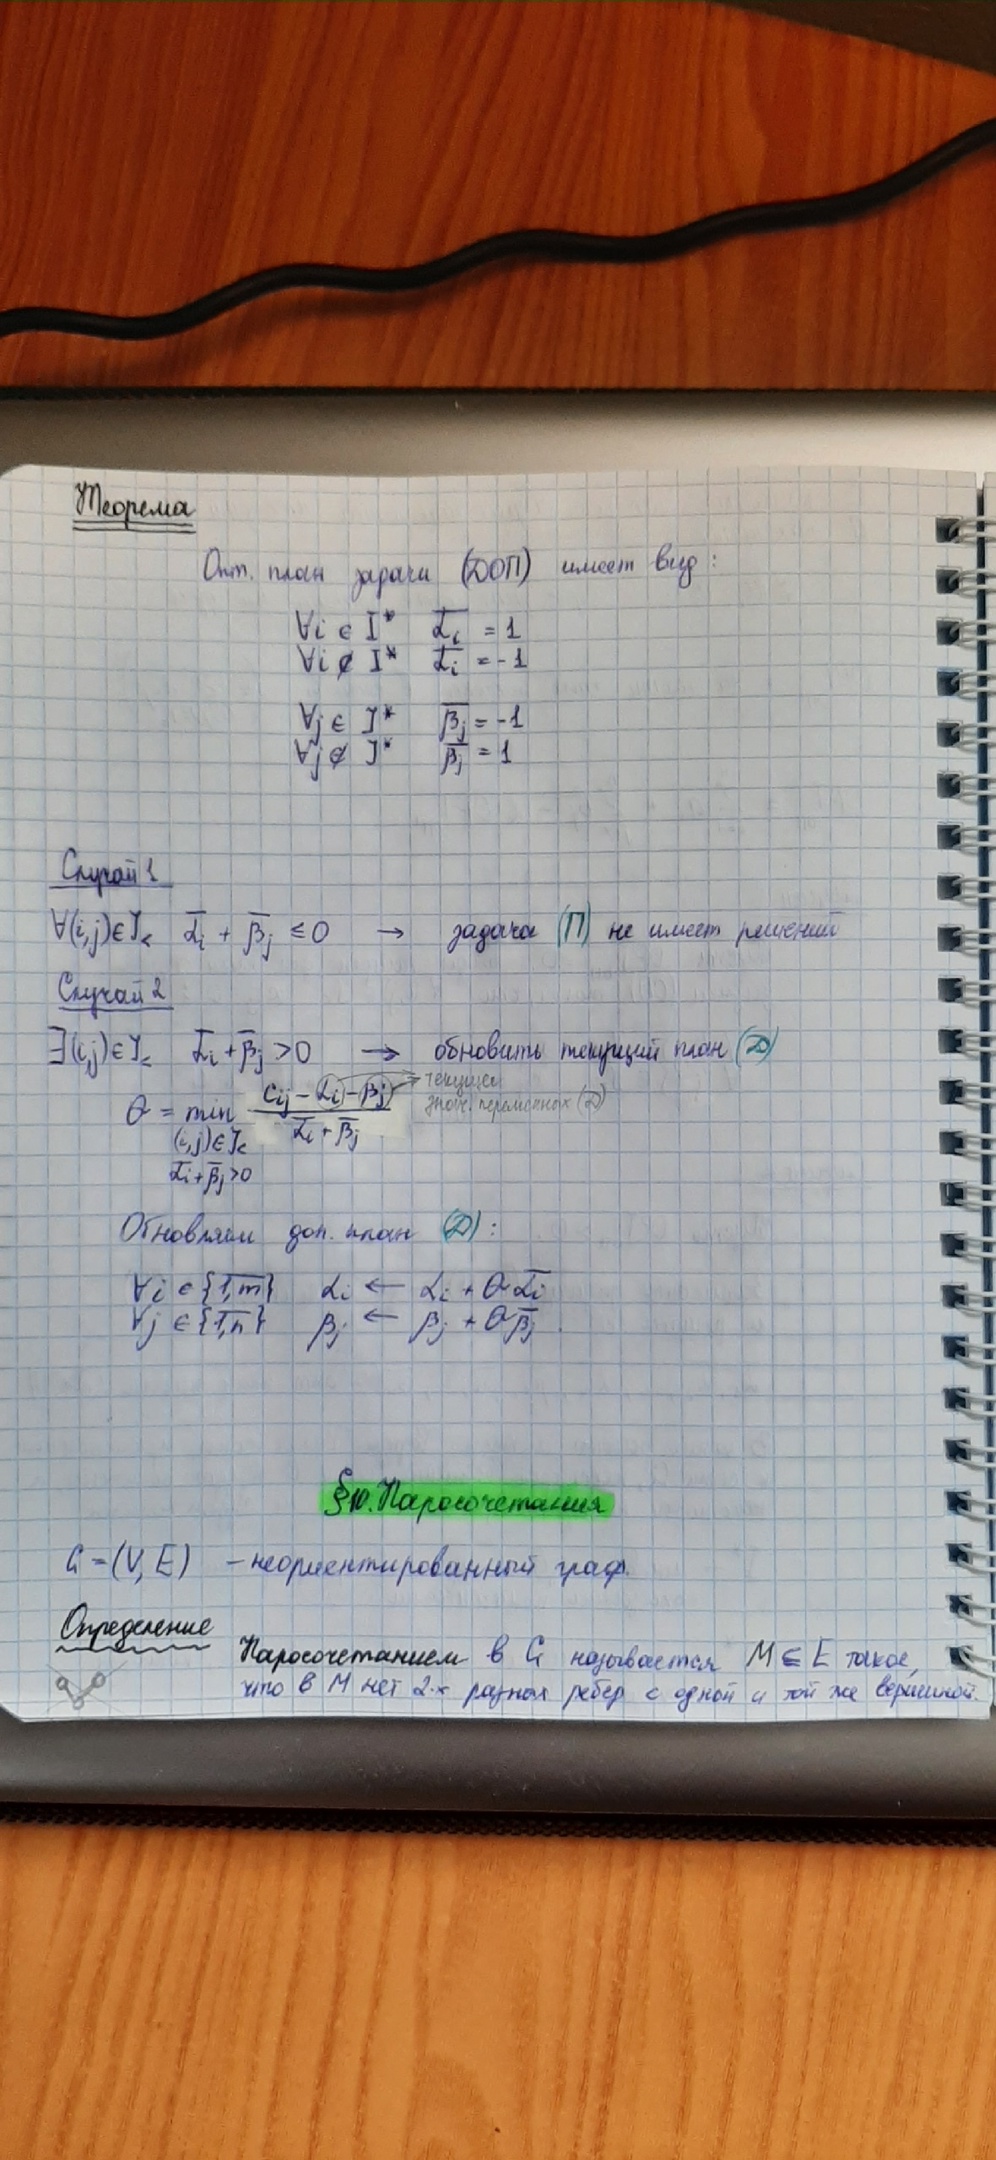 Теорема
Опт. план задачи (ДОП) имеет вид:
∀i ∈ I* ᾱᵢ = 1
∀i ∉ I* ᾱᵢ = -1
∀j ∈ J* β̄ⱼ = -1
∀j ∉ J* β̄ⱼ = 1
Случай 1
∀(i,j)∈J< ᾱᵢ + β̄ⱼ ≤ 0 → задача (П) не имеет решений
Случай 2
∃(i,j)∈J< ᾱᵢ + β̄ⱼ > 0 → обновить текущий план (Д)
θ = min (cᵢⱼ - αᵢ - βⱼ) / (ᾱᵢ + β̄ⱼ) → текущие
(i,j)∈J< знач. переменных (Д)
ᾱᵢ + β̄ⱼ > 0
Обновляем доп. план (Д):
∀i ∈ {1,m} αᵢ ← αᵢ + θᾱᵢ
∀j ∈ {1,n} βⱼ ← βⱼ + θβ̄ⱼ.
§10. Паросочетания
G = (V, E) – неориентированный граф.
Определение
Паросочетанием в G называется M ⊆ E такое,
что в M нет 2-х разных рёбер с одной и той же вершиной.